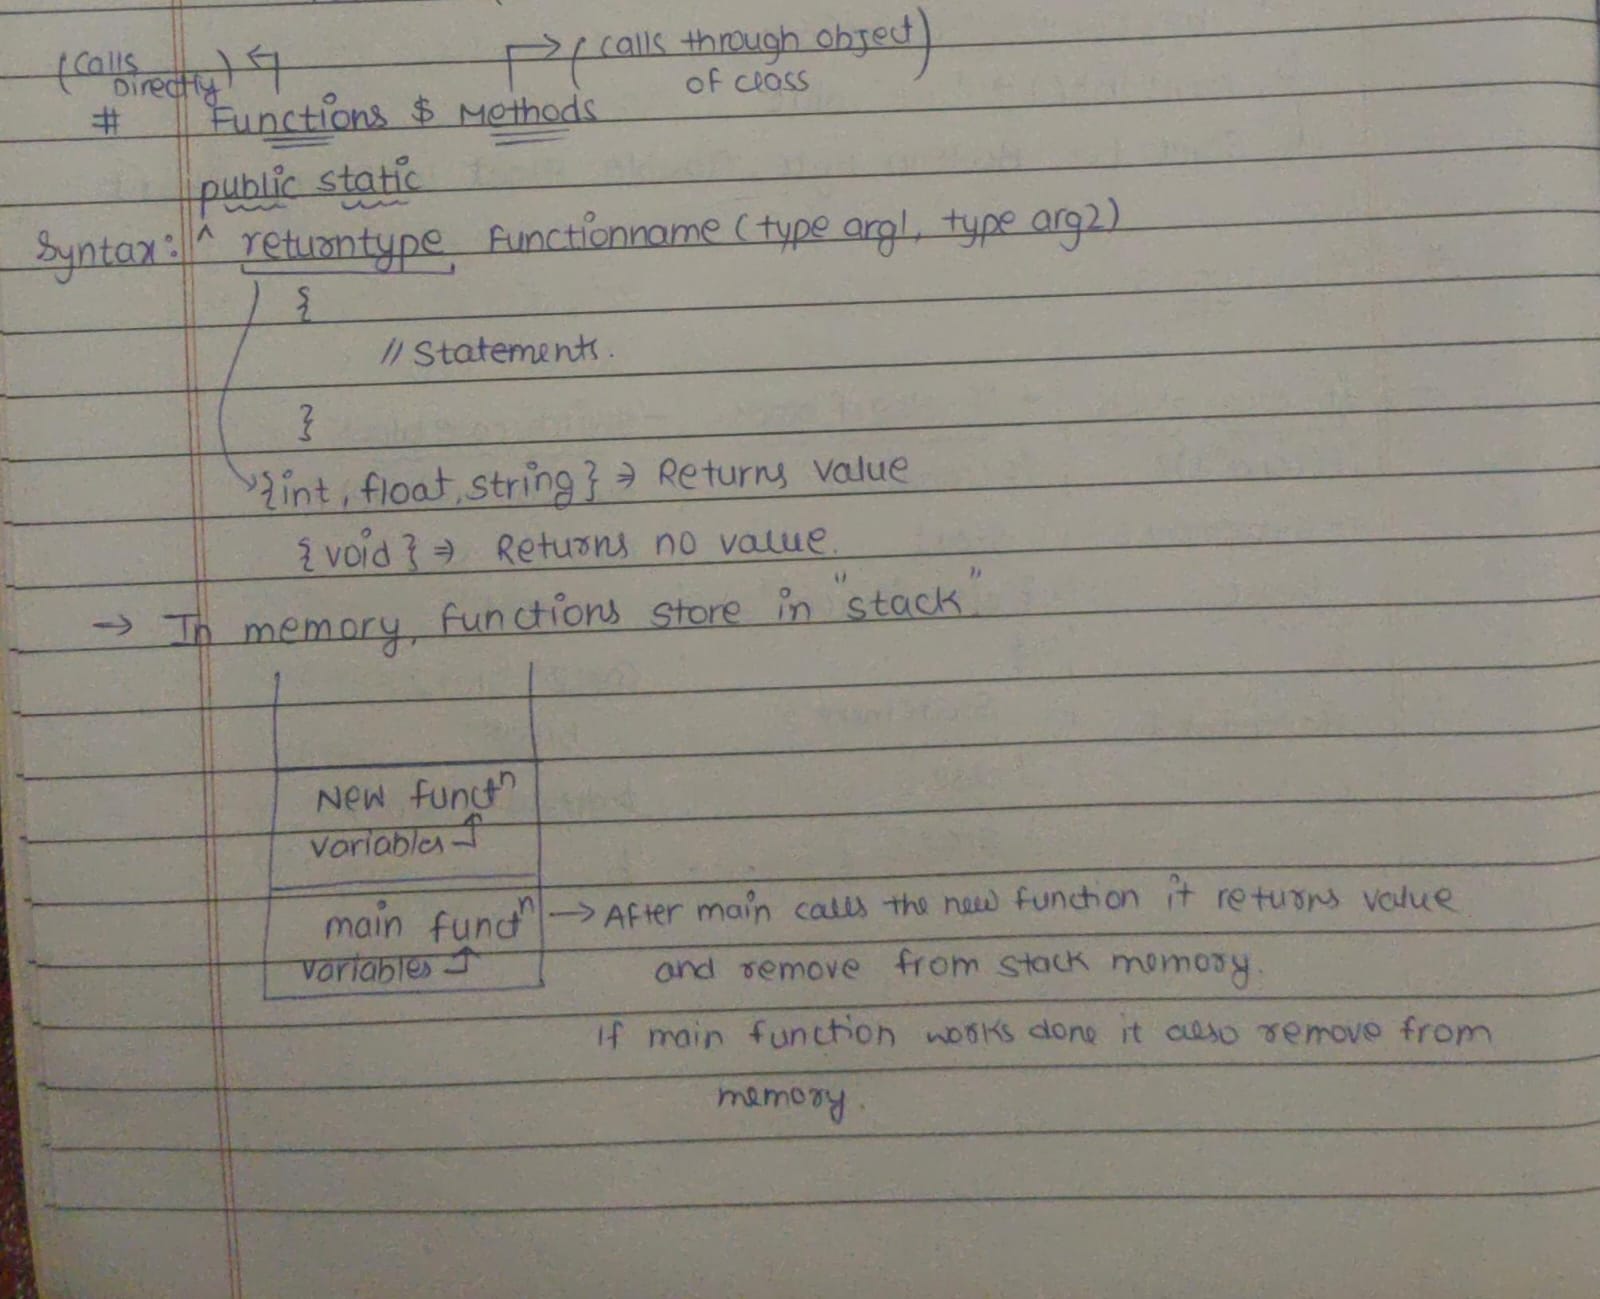 (calls through object)
(Calls
of class
Directly)
# Functions $ Methods
public static
Syntax: ^ returntype functionname (type arg1, type arg2)
{
// Statements.
}
{int, float, string} ⇒ Returns value
{void} ⇒ Returns no value.
→ In memory, functions store in "stack"
New functⁿ
variables
main functⁿ → After main calls the new function it returns value
variables
and remove from stack memory.
If main function works done it also remove from
memory.